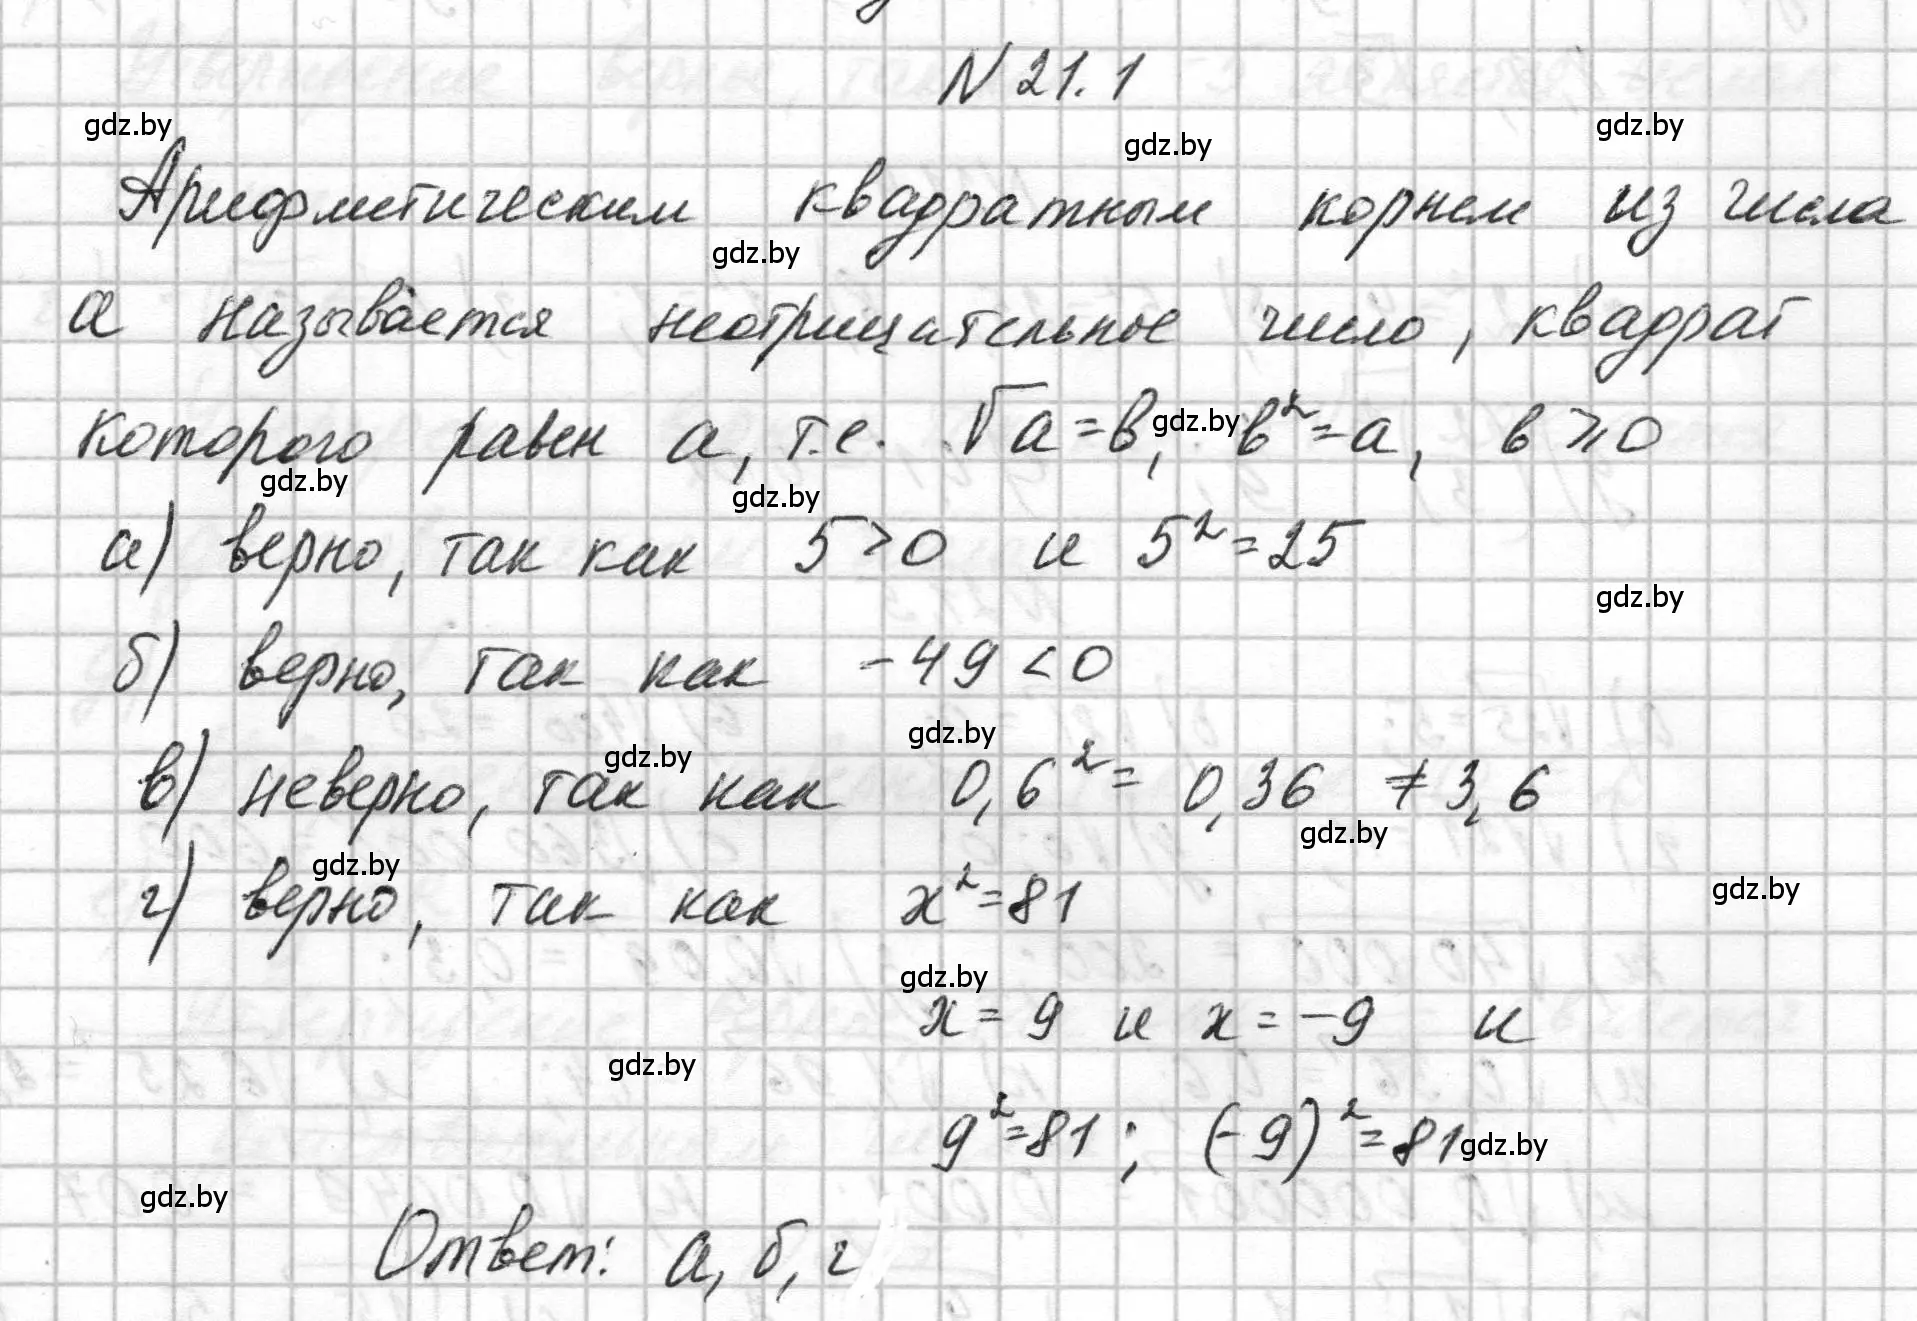 N 21.1
gdz.by gdz.by gdz.by
Арифметическим квадратным корнем из числа
gdz.by
а называется неотрицательное число, квадрат
которого равен а, т.е. √a = в, в² = а, в ⩾ 0
gdz.by
gdz.by gdz.by
а) верно, так как 5 > 0 и 5² = 25
gdz.by
б) верно, так как -49 < 0
gdz.by
gdz.by
в) неверно, так как 0,6² = 0,36 ≠ 3,6
gdz.by
gdz.by
г) верно, так как x² = 81
gdz.by
gdz.by
x = 9 и x = -9 и
gdz.by
9² = 81; (-9)² = 81
gdz.by
gdz.by
Ответ: а, б, г